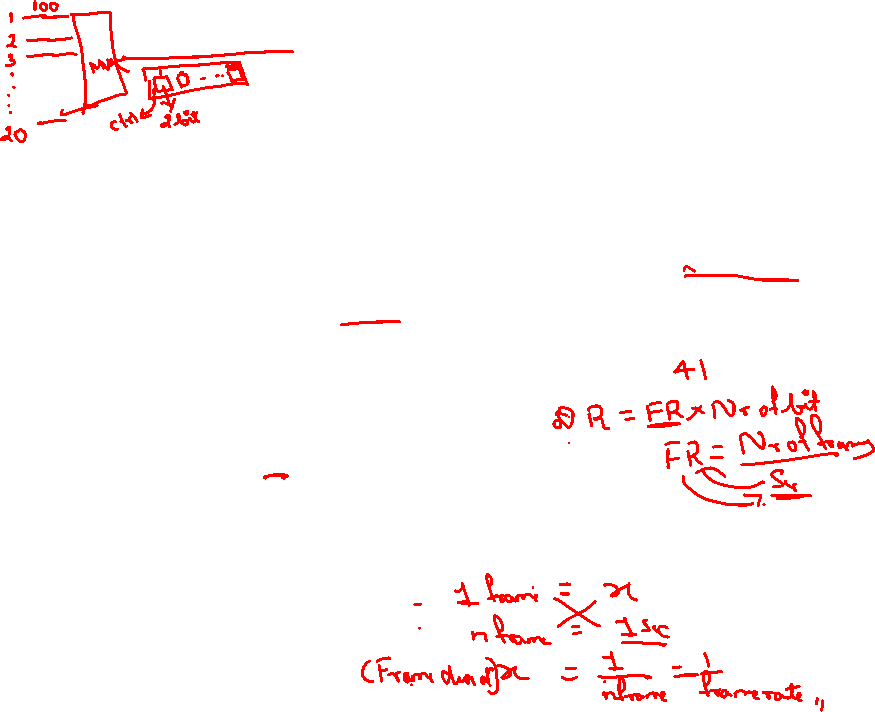 1 100
2
3
20
MUX
D
2 bit
41
DR = FR × Nr of bit
FR = Nr of frams
Sec
1 frame = x
n frame = 1 sec
(Frame durat) x = 1 / n frame = 1 / frame rate,,